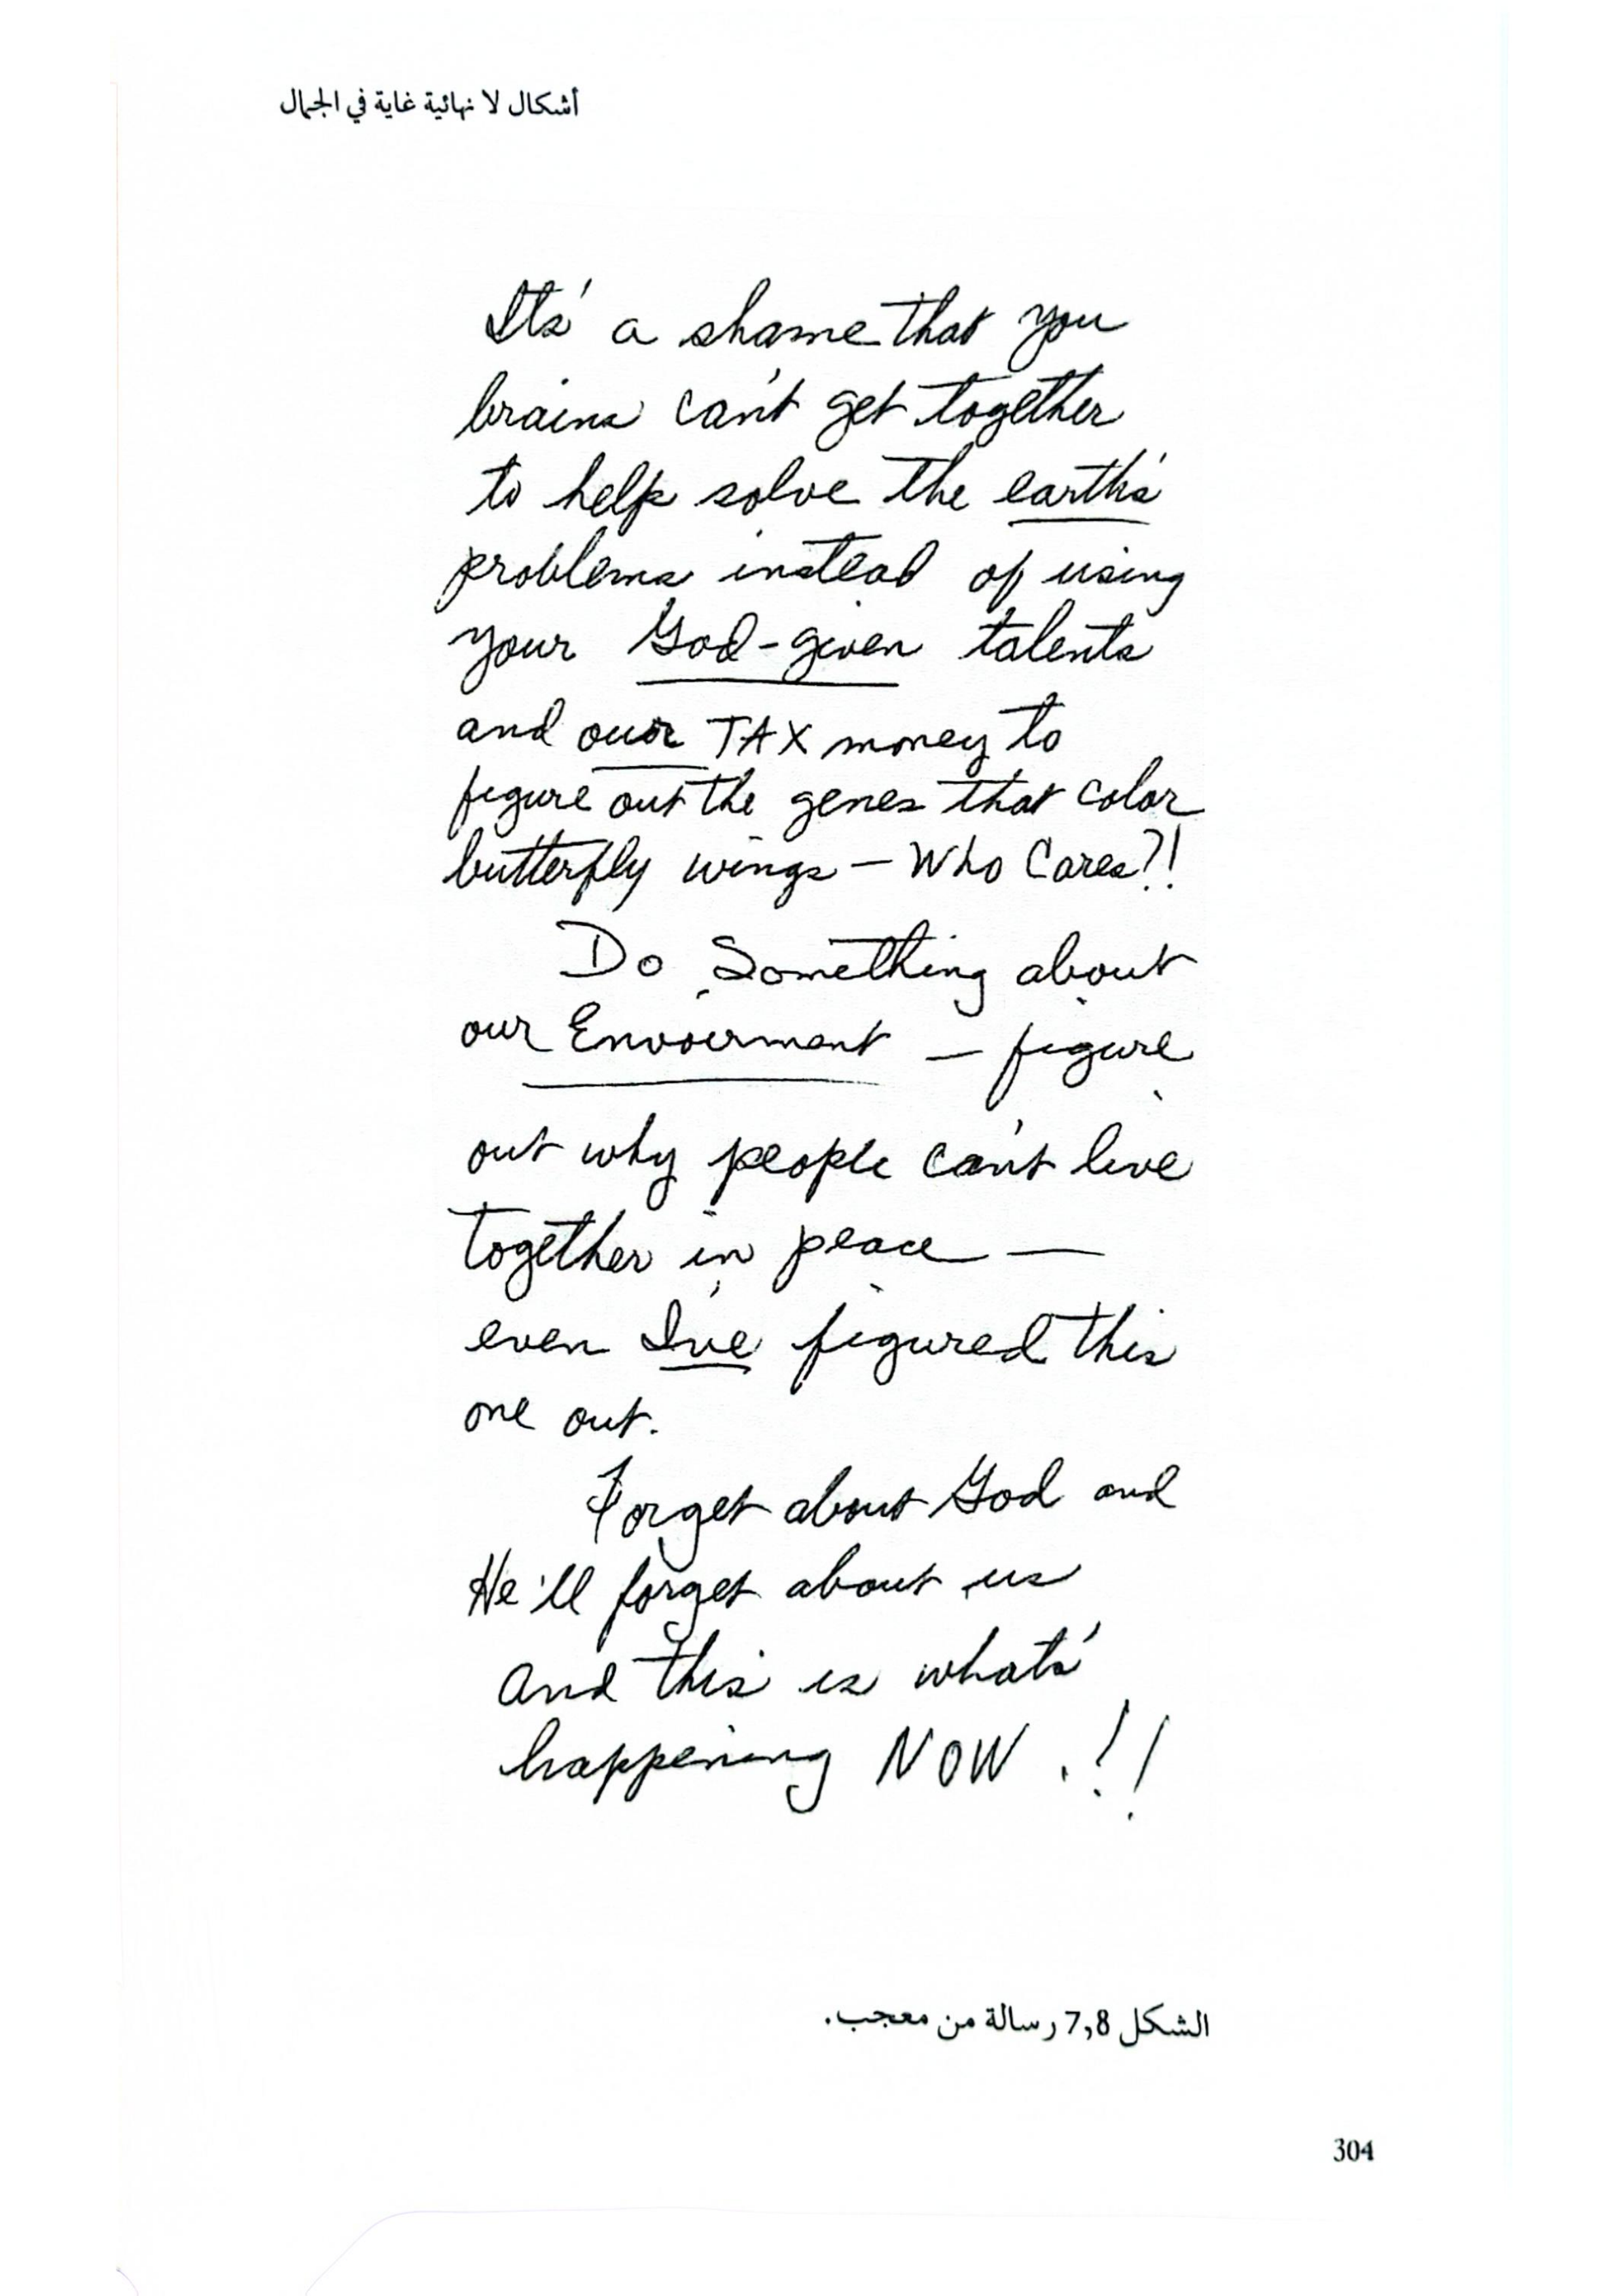 أشكال لا نهائية غاية في الجمال
It's a shame that you
brains can't get together
to help solve the earth's
problems instead of using
your God-given talents
and our TAX money to
figure out the genes that color
butterfly wings — Who Cares?!
Do Something about
our Envoirment — figure
out why people can't live
together in peace —
even I've figured this
one out.
Forget about God and
He'll forget about us
and this is what's
happening NOW.!!
الشكل 7,8 رسالة من معجب.
304